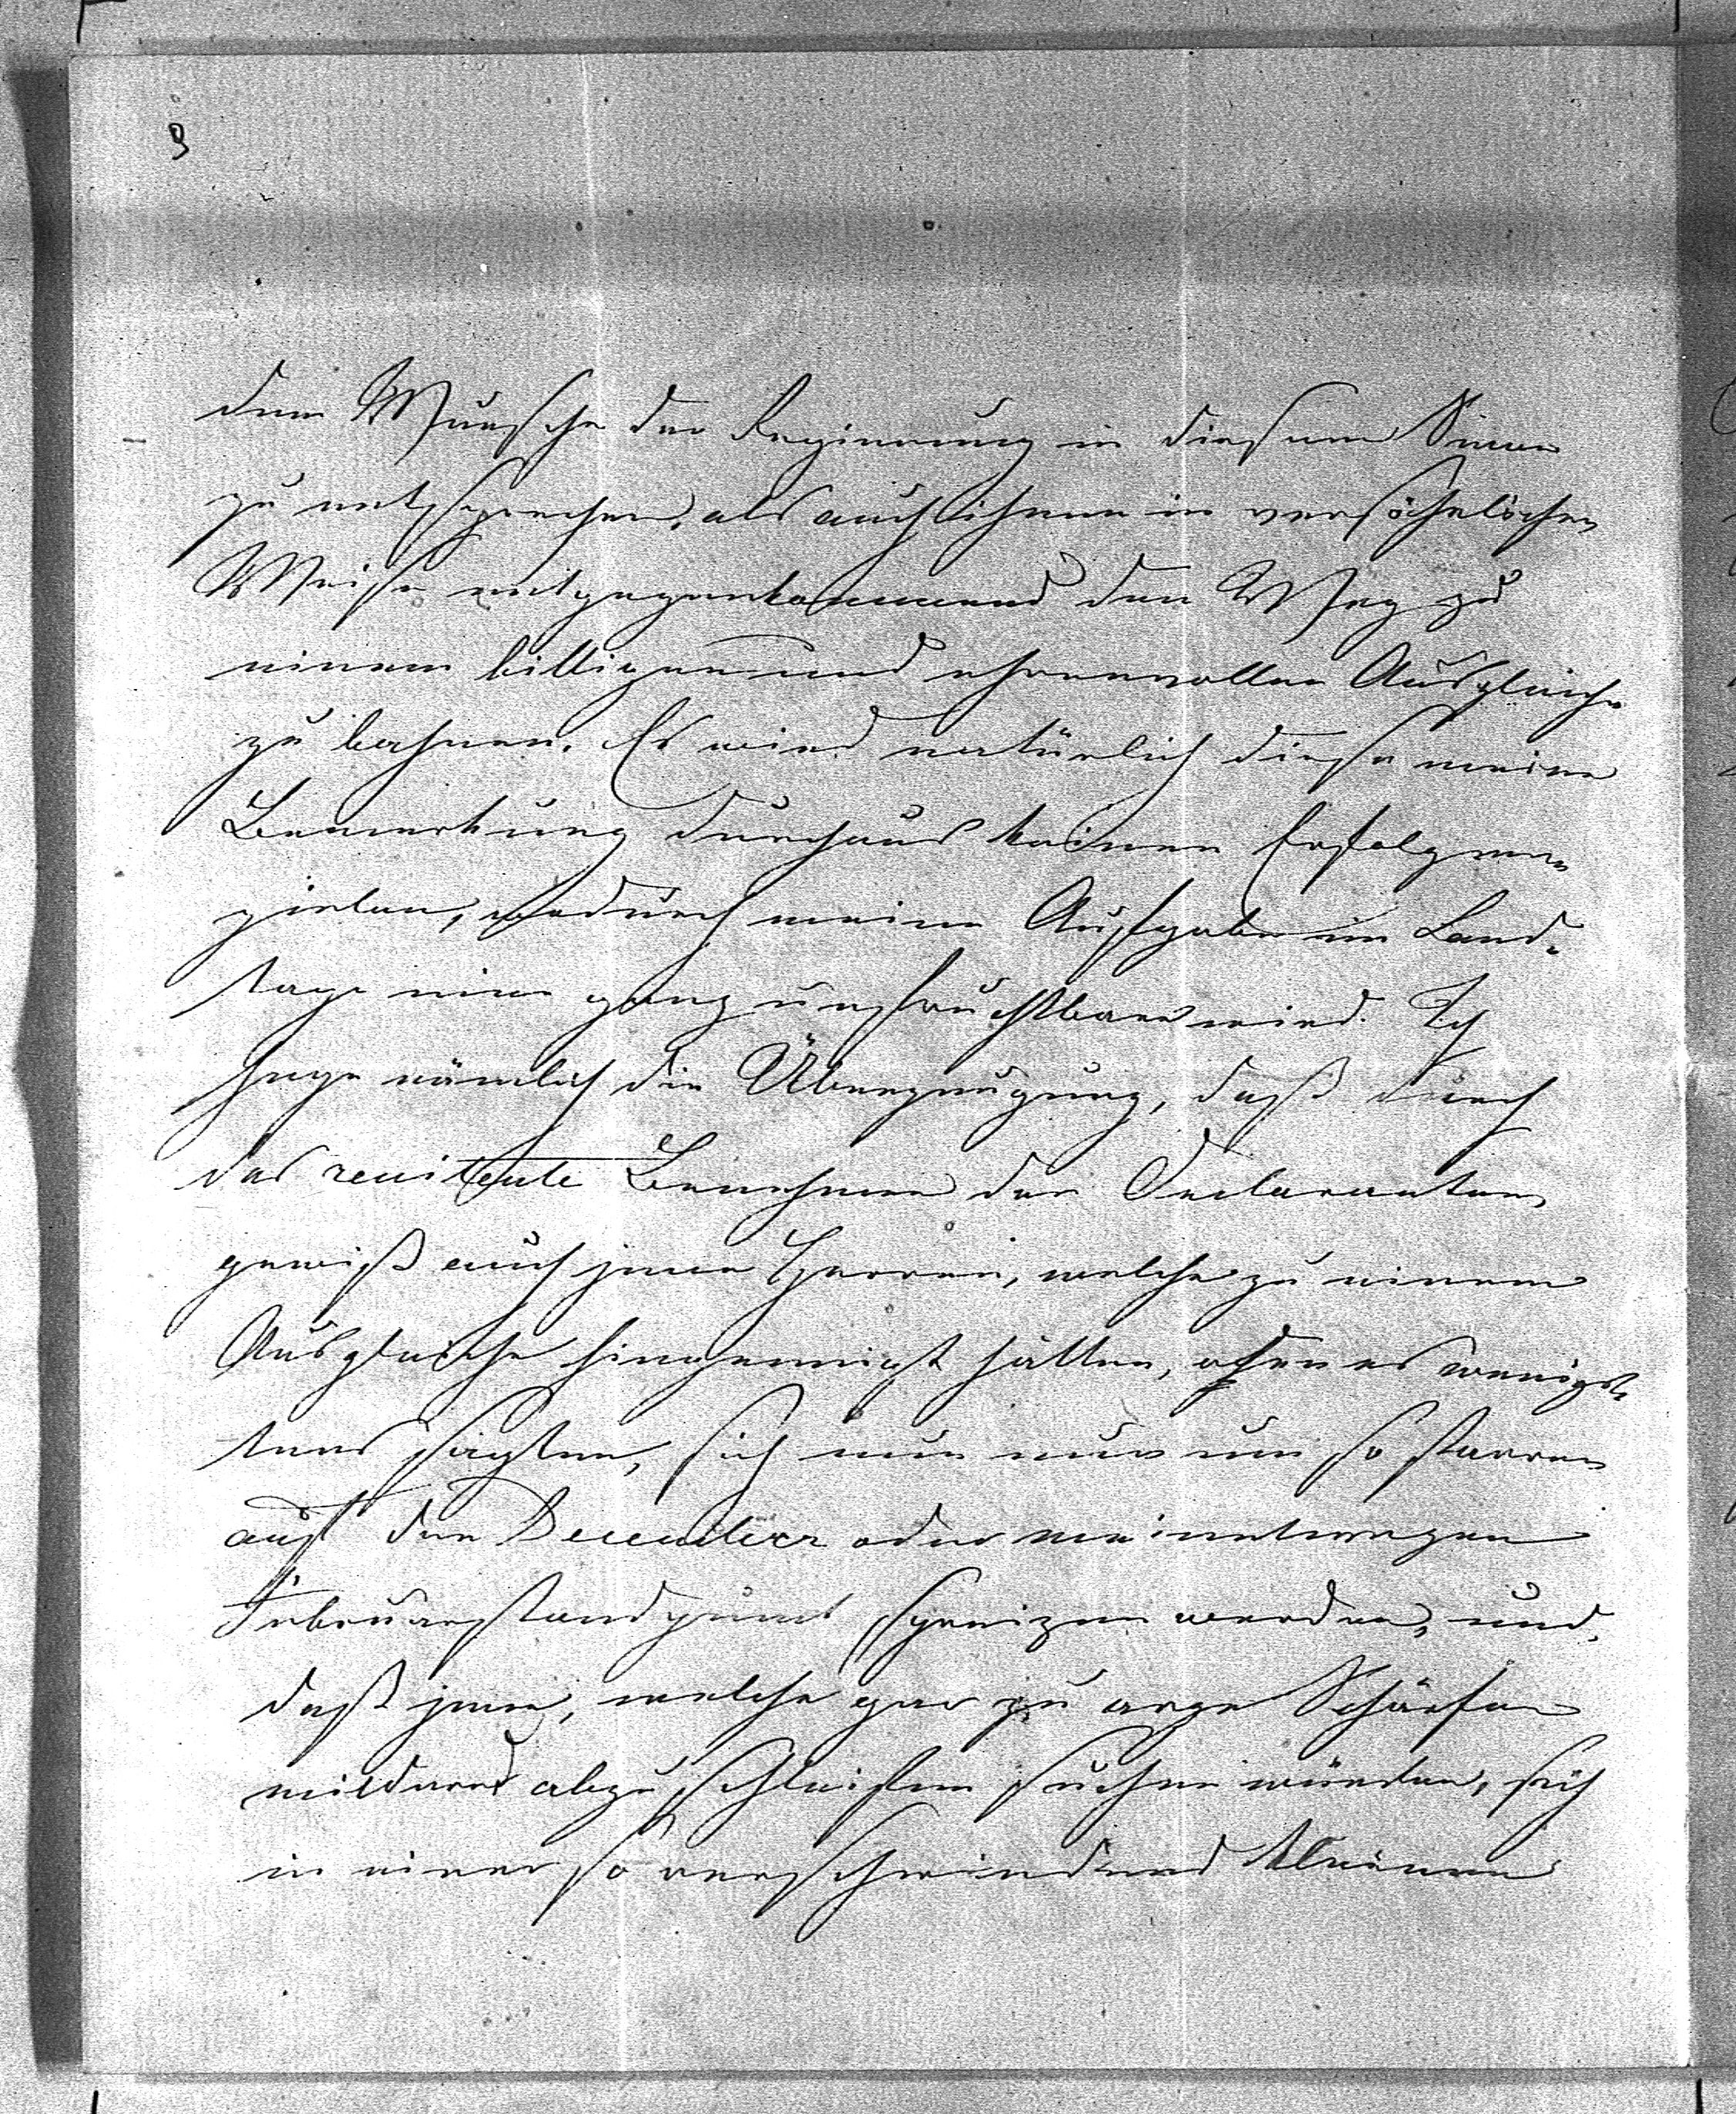 3
dem Wunsche der Regierung in diesem Sinne
zu entsprechen, als auch ihnen in versöhnlicher
Weise entgegenkommend den Weg zu
einem billigen und ehrenvollen Ausgleiche
zu bahnen. Es wird natürlich diese meine
Bemerkung durchaus keinen Erfolg er-
zielen, wodurch meine Aufgabe im Land-
tage eine ganz unfruchtbare wird. Ich
hege nämlich die Überzeugung, daß durch
das renitente Benehmen der Declaranten
gewiß auch jene Herren, welche zu einem
Ausgleiche hingeneigt hätten, oder es wenigs-
tens sagten, sich nun nur um so starrer
auf den December oder meinetwegen
Februarstandpunct spreizen werden, und
daß jene, welche gar zu arge Schärfen
mildernd abzuschleifen suchen würden, sich
in einer so verschwindend kleinen